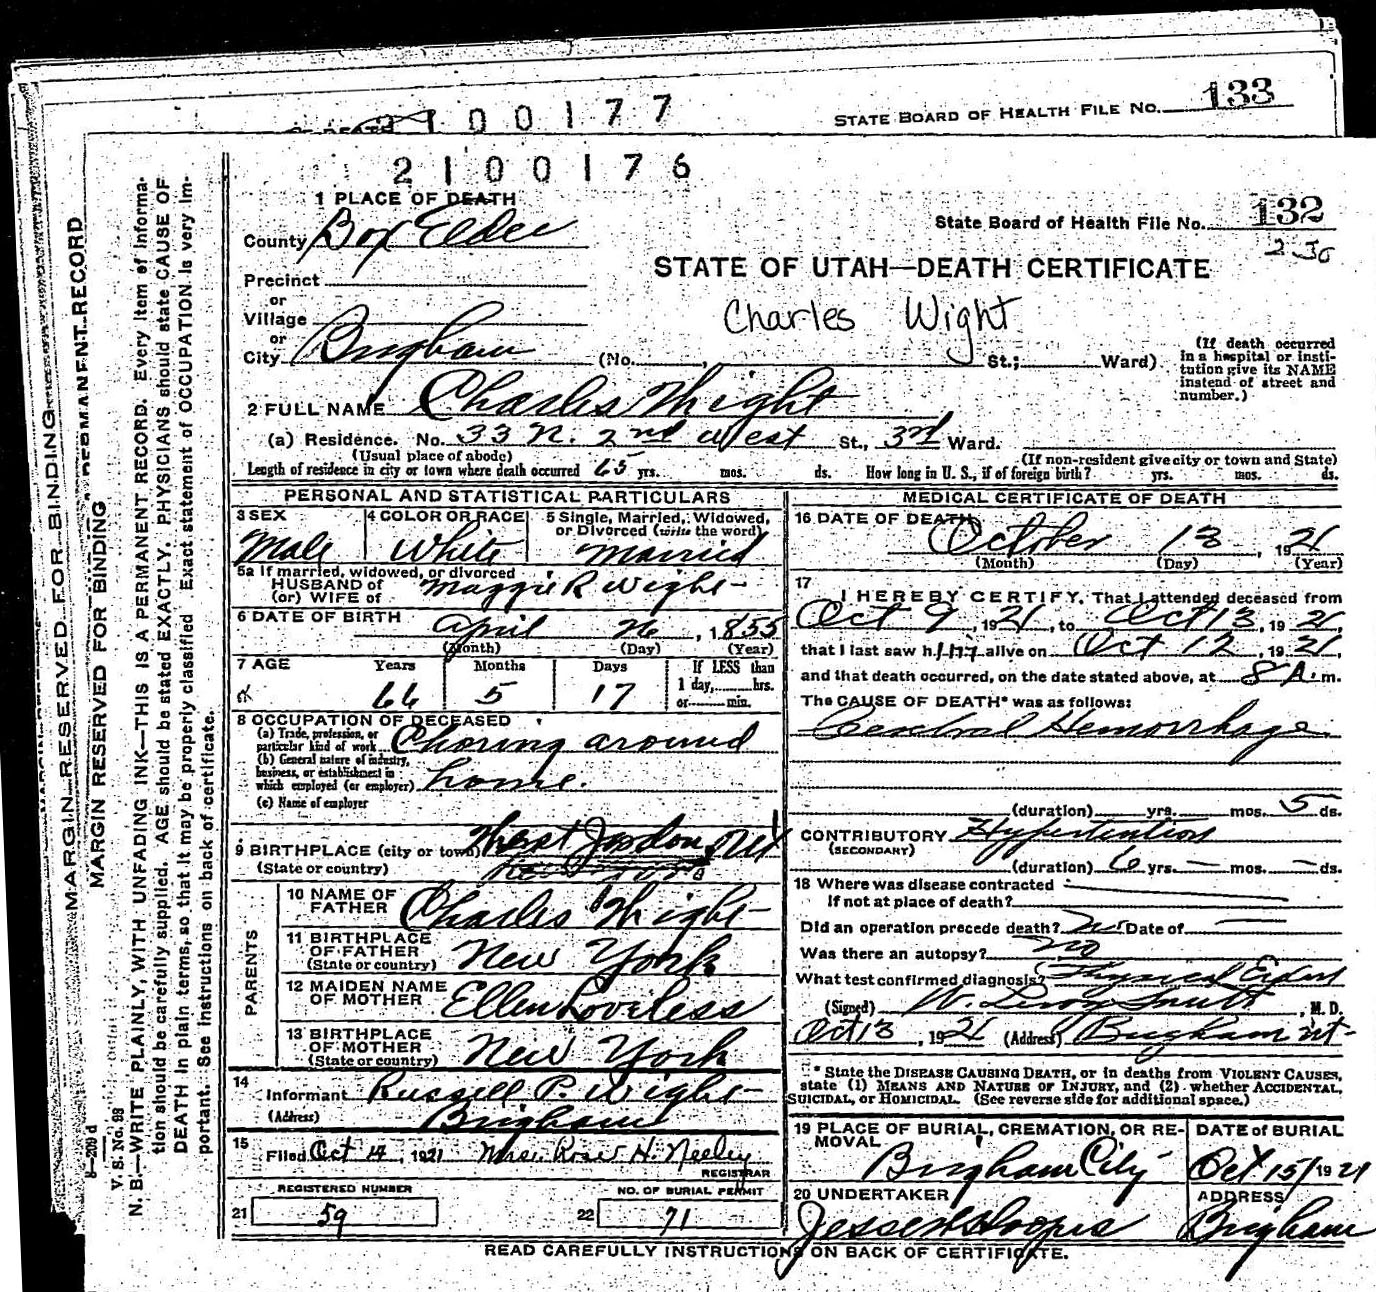 100177
STATE BOARD OF HEALTH FILE NO. 133
2100176
1 PLACE OF DEATH
State Board of Health File No. 132
County Box Elder
2-30
STATE OF UTAH—DEATH CERTIFICATE
Precinct
or
Village
Charles Wight
or
City Brigham (No. , St.; Ward)
(If death occurred
in a hospital or insti-
tution give its NAME
instead of street and
number.)
2 FULL NAME Charles Wight
(a) Residence. No. 33 N. 2nd West St., 3rd Ward.
(Usual place of abode)
(If non-resident give city or town and State)
Length of residence in city or town where death occurred 65 yrs. mos. ds. How long in U. S., if of foreign birth? yrs. mos. ds.
PERSONAL AND STATISTICAL PARTICULARS
3 SEX
Male
4 COLOR OR RACE
White
5 Single, Married, Widowed,
or Divorced (write the word)
Married
5a If married, widowed, or divorced
HUSBAND of
(or) WIFE of Maggie R Wight
6 DATE OF BIRTH
April 26, 1855
(Month) (Day) (Year)
7 AGE Years Months Days If LESS than
1 day, hrs.
or min.
66 5 17
8 OCCUPATION OF DECEASED
(a) Trade, profession, or
particular kind of work Choring around
(b) General nature of industry,
business, or establishment in
which employed (or employer) home.
(c) Name of employer
9 BIRTHPLACE (city or town) West Jordon, Ut
(State or country)
PARENTS
10 NAME OF
FATHER Charles Wight
11 BIRTHPLACE
OF FATHER
(State or country) New York
12 MAIDEN NAME
OF MOTHER Ellen Loveless
13 BIRTHPLACE
OF MOTHER
(State or country) New York
14
Informant Russell P. Wight
(Address) Brigham
15
Filed Oct 14, 1921 Mrs. Rose H. Neeley
REGISTRAR
REGISTERED NUMBER
21 59
NO. OF BURIAL PERMIT
22 71
MEDICAL CERTIFICATE OF DEATH
16 DATE OF DEATH
October 13, 1921
(Month) (Day) (Year)
17
I HEREBY CERTIFY, That I attended deceased from
Oct 9, 1921, to Oct 13, 1921,
that I last saw him alive on Oct 12, 1921,
and that death occurred, on the date stated above, at 8 A. m.
The CAUSE OF DEATH* was as follows:
Cerebral Hemorrhage
(duration) yrs. mos. 5 ds.
CONTRIBUTORY Hypertention
(SECONDARY)
(duration) 6 yrs. — mos. — ds.
18 Where was disease contracted
If not at place of death?
Did an operation precede death? no Date of
Was there an autopsy? no
What test confirmed diagnosis? Physical
(Signed) W. Leroy Smith, M. D.
Oct 13, 1921 (Address) Brigham Ut
* State the DISEASE CAUSING DEATH, or in deaths from VIOLENT CAUSES,
state (1) MEANS AND NATURE OF INJURY, and (2) whether ACCIDENTAL,
SUICIDAL, or HOMICIDAL. (See reverse side for additional space.)
19 PLACE OF BURIAL, CREMATION, OR RE-
MOVAL
Brigham City
DATE of BURIAL
Oct 15/1921
20 UNDERTAKER
ADDRESS
Brigham
READ CAREFULLY INSTRUCTIONS ON BACK OF CERTIFICATE.
MARGIN RESERVED FOR BINDING
PERMANENT RECORD
MARGIN RESERVED FOR BINDING
N. B.—WRITE PLAINLY, WITH UNFADING INK—THIS IS A PERMANENT RECORD. Every item of informa-
tion should be carefully supplied. AGE should be stated EXACTLY. PHYSICIANS should state CAUSE OF
DEATH in plain terms, so that it may be properly classified. Exact statement of OCCUPATION is very im-
portant. See instructions on back of certificate.
8—209 d
V. S. No. 98